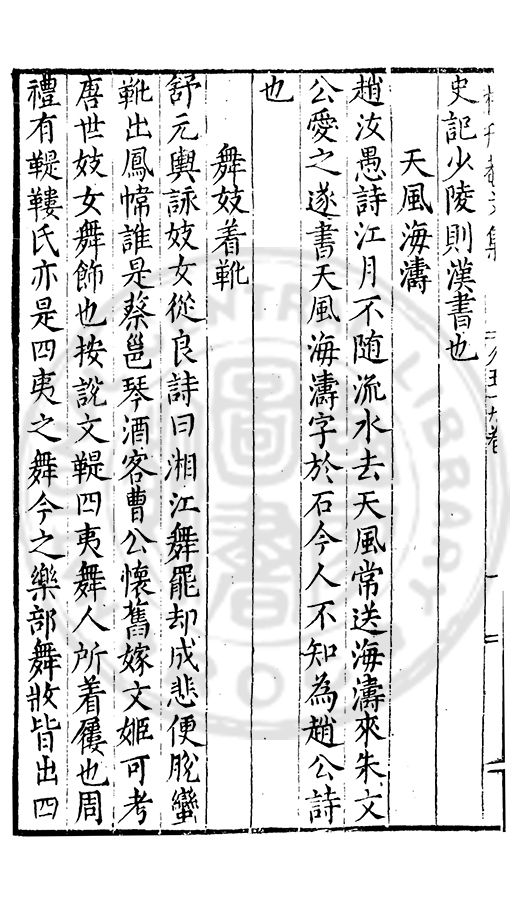 史記少陵則漢書也
天風海濤
趙汝愚詩江月不随流水去天風常送海濤來朱文
公愛之遂書天風海濤字於石今人不知為趙公詩
也
舞妓着靴
舒元輿詠妓女從良詩曰湘江舞罷却成悲便脫蠻
靴出鳳幃誰是蔡邕琴酒客曹公懷舊嫁文姬可考
唐世妓女舞飾也按說文鞮四夷舞人所着屨也周
禮有鞮鞻氏亦是四夷之舞今之樂部舞妝皆出四